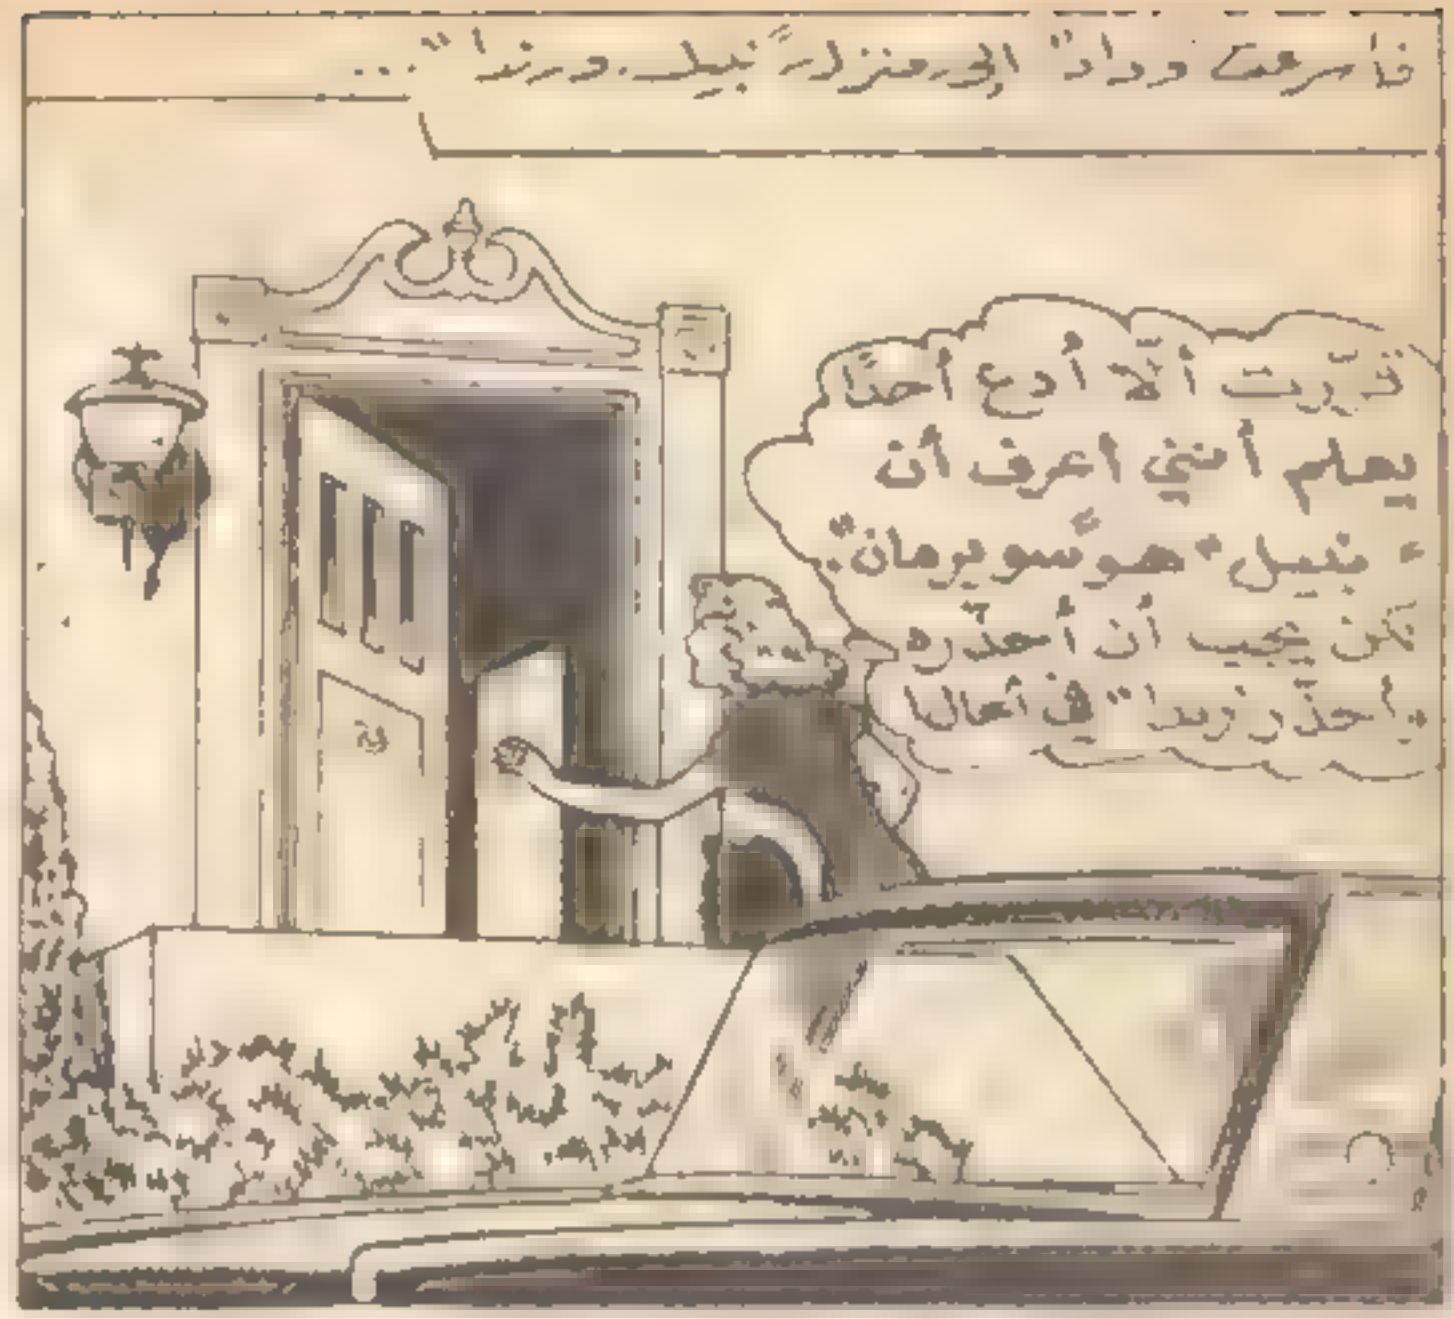 فأسرعت وداد" إلى منزل "نبيل ورندا"...
قرّرت ألّا أدع أحدًا
يعلم أنني أعرف أن
"نبيل" هو "سوبرمان".
لكن يجب أن أحذّره
. أحذّر رندا" في الحال!